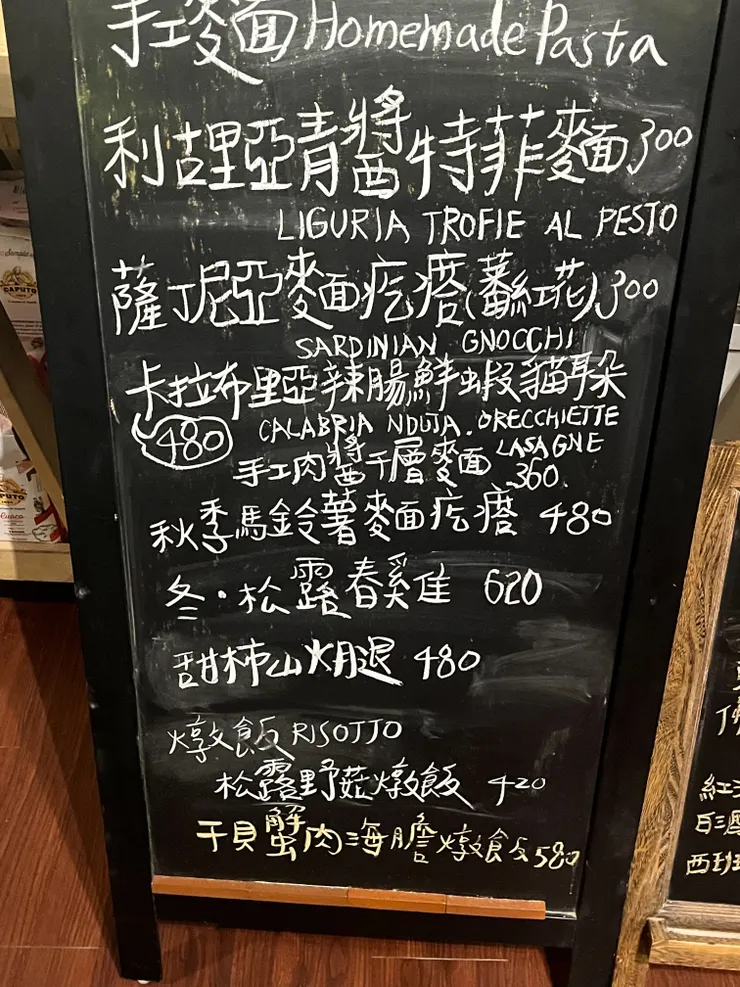 手工麥面 Homemade Pasta
利古里亞青醬特菲麵 300
LIGURIA TROFIE AL PESTO
薩丁尼亞麵疙瘩(蕃紅花) 300
SARDINIAN GNOCCHI
卡拉布里亞辣腸鮮蝦貓耳朵
480
CALABRIA NDUJA. ORECCHIETTE
手工肉醬千層麵 LASAGNE
360.
秋季馬鈴薯麵疙瘩 480
冬·松露春雞 620
甜柿火腿 480
燉飯 RISOTTO
松露野菇燉飯 420
干貝蟹肉海膽燉飯 580
CAPUTO